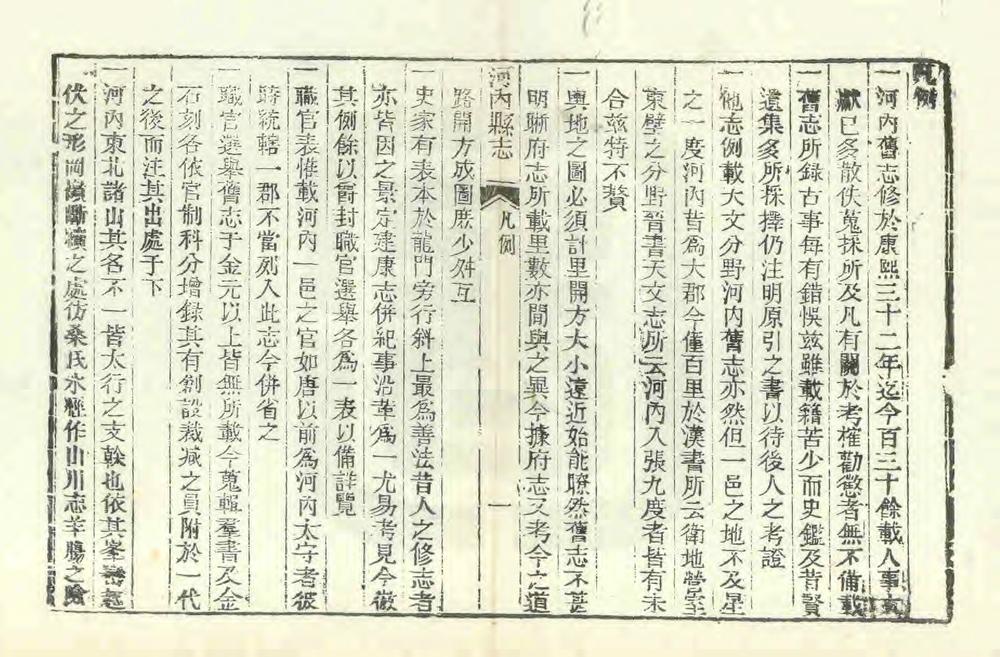 凡例
一河內舊志修於康熙三十二年迄今百三十餘載人事文
獻已多散佚蒐採所及凡有關於考榷勸懲者無不備載
一舊志所錄古事每有錯悞茲雖載籍苦少而史鑑及昔賢
遺集多所採擇仍注明原引之書以待後人之考證
一他志例載天文分野河內舊志亦然但一邑之地不及星
之一度河內昔為大郡今僅百里於漢書所云衛地營室
東壁之分野晉書天文志所云河內入張九度者皆有未
合茲特不贅
一輿地之圖必須計里開方大小遠近始能瞭然舊志不甚
明晰府志所載里數亦間與之異今據府志又考今之道
河內縣志
凡例
一
路開方成圖庶少舛互
一史家有表本於龍門旁行斜上最為善法昔人之修志者
亦皆因之景定建康志併紀事沿革為一尤易考見今倣
其例餘以爵封職官選舉各為一表以備詳覽
一職官表惟載河內一邑之官如唐以前為河內太守者彼
時統轄一郡不當列入此志今併省之
一職官選舉舊志于金元以上皆無所載今蒐輯羣書及金
石刻各依官制科分增錄其有創設裁减之員附於一代
之後而注其出處于下
一河內東北諸山其名不一皆太行之支榦也依其峯巒起
伏之形岡嶺斷續之處彷桑氏水經作山川志羊腸之險